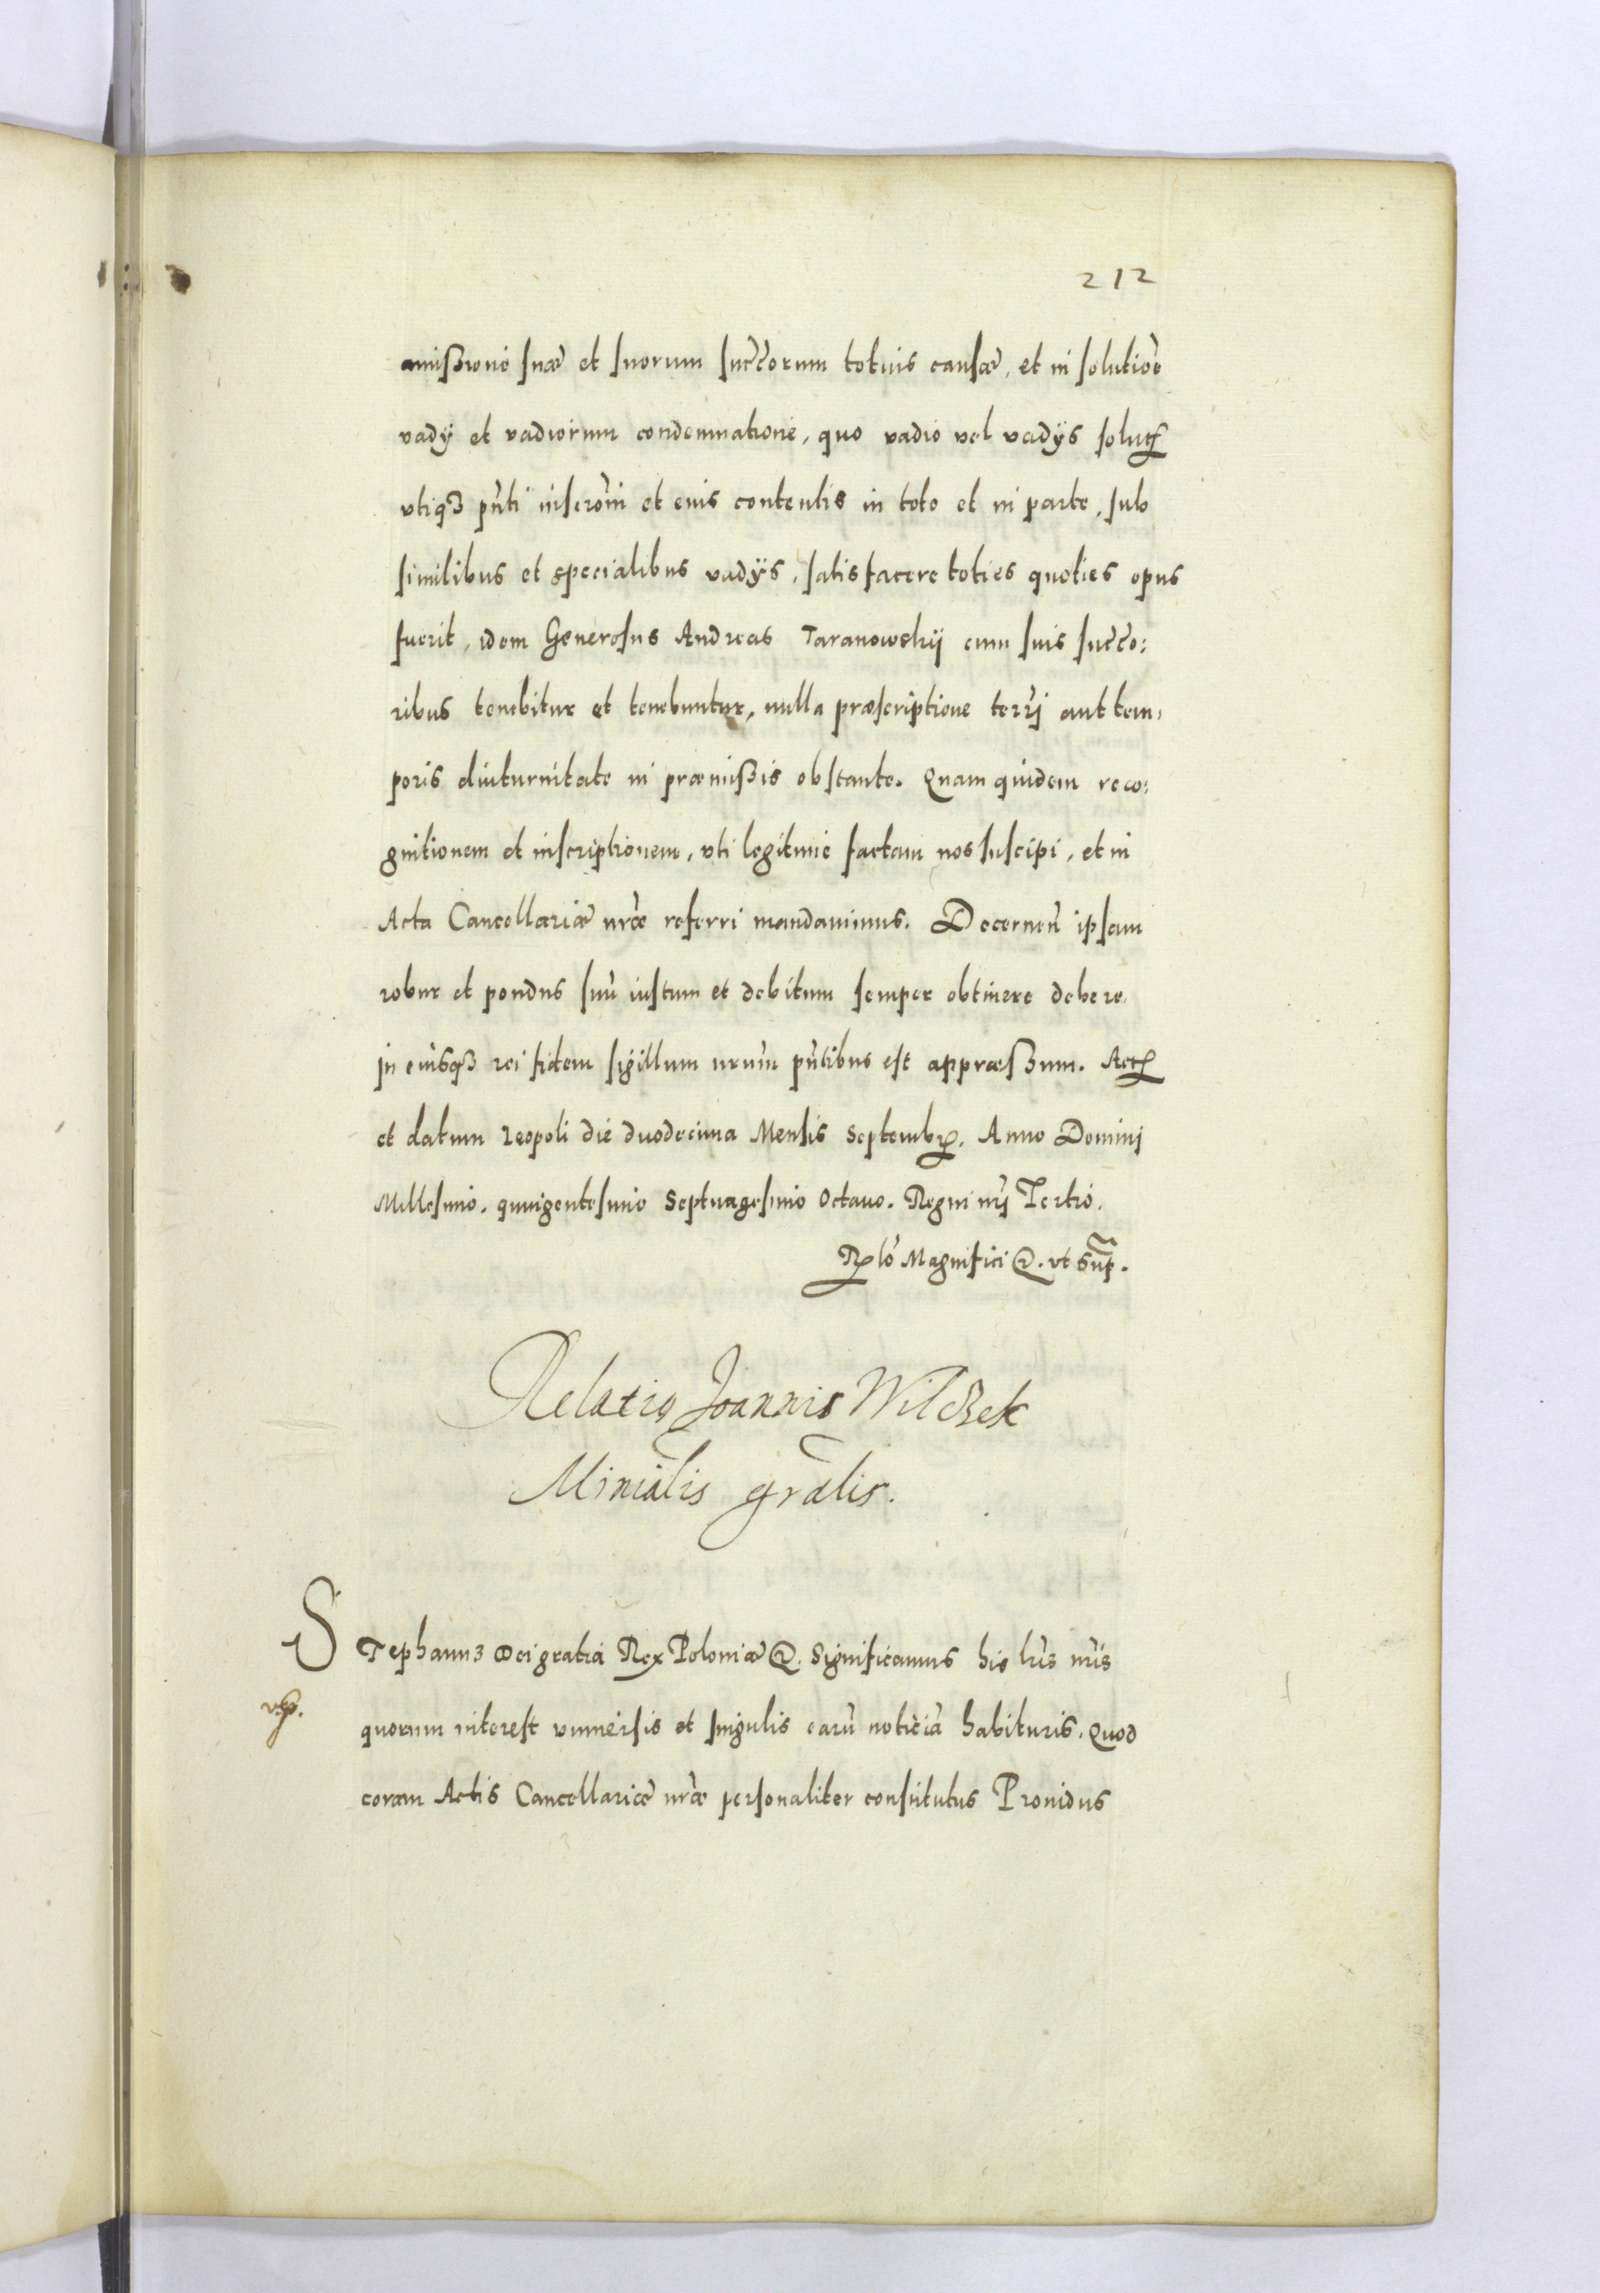 212
amißione suæ et suorum succ̃orum totius causæ, et in solutiõe
vadÿ et vadiorum condemnatione, quo vadio vel vadÿs solut
vtiqȝ pñti inscrõni et eius contentis in toto et in parte, sub
similibus et specialibus vadÿs, satisfacere toties quoties opus
fuerit, idem Generosus Andreas Taranowskÿ cum suis succ̃o:
ribus tenebitur et tenebuntur, nulla præscriptione terrj aut tem,
poris diuturnitate in præmißis obstante. Quam quidem reco:
gnitionem et inscriptionem, vti legitime factam nos suscipi, et in
Acta Cancellariæ nr̃æ referri mandauimus. Decernen̄ ipsam
robur et pondus suū iustum et debitum semper obtinere debere.
jn cuiusqȝ rei fidem sigillum nrum̃ pñtibus est appræßum. Act
et datum Leopoli die duodecima Mensis Septembr. Anno Dominj
Millesimo. quingentesimo Septuagesimo Octauo. Regni nrj Tertio.
Rlõ Magnifici @. vt sup̃.
Relatio Joannis Wilczek
Miniãlis gr̃alis.
Stephanus Dei gratia Rex Poloniæ @. Significamus his lr̃is nr̃is
quorum interest vniuersis et singulis earū noticiā habituris. Quod
coram Actis Cancellariæ nr̃æ personaliter constitutus Prouidus